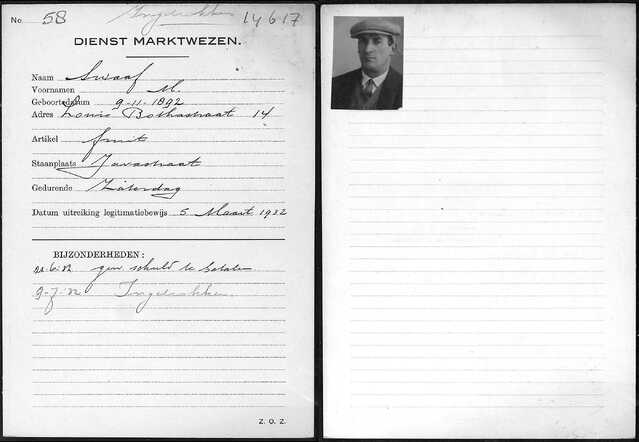 No 58 Ingetrokken 14617
DIENST MARKTWEZEN.
Naam Swaaf
Voornamen M.
Geboortedatum 9-11-1892
Adres Louis Bothastraat 14
Artikel fruit
Staanplaats Javastraat
Gedurende Zaterdag
Datum uitreiking legitimatiebewijs 5 Maart 1932
BIJZONDERHEDEN:
gew. schuld te betalen
9-7-32 Ingetrokken.
Z. O. Z.